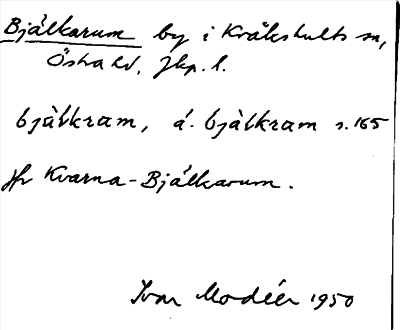 Bjälkarum by i Kråkshults sn,
Östra hd, Jkp. l.
bjàlkram, á. bjàlkram s. 165
Jfr Kvarna-Bjälkarum.
Ivar Modéer 1950